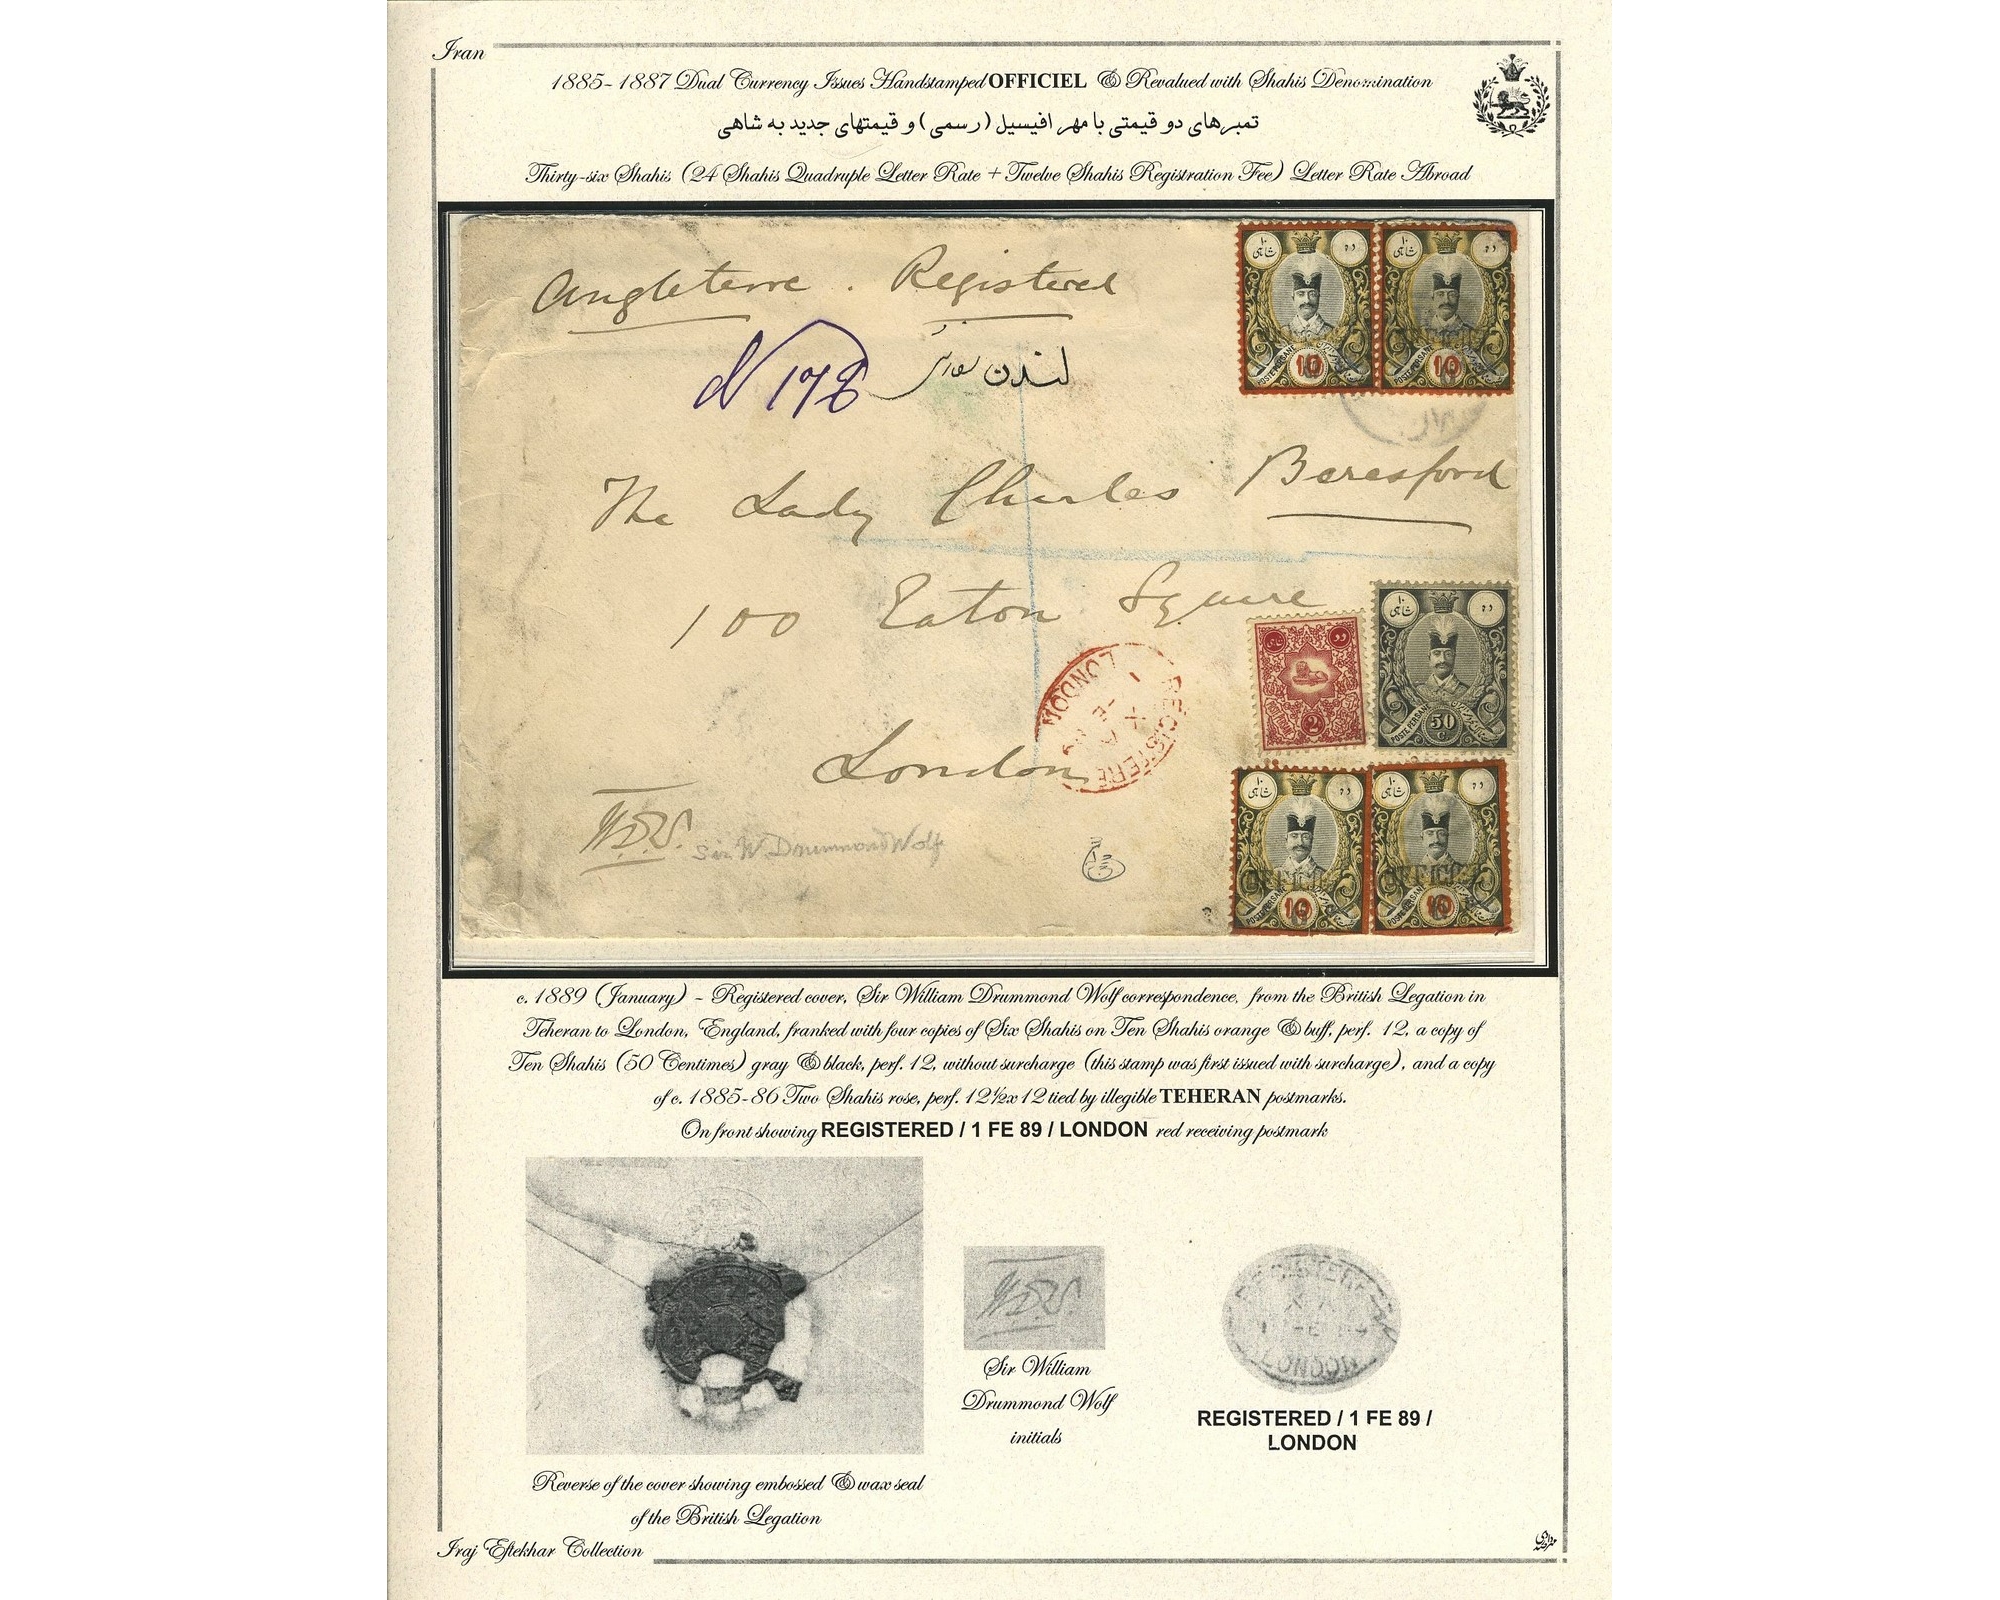 Iran
1885-1887 Dual Currency Issues Handstamped OFFICIEL & Revalued with Shahis Denomination
تمبرهای دو قیمتی با مهر افیسیل (رسمی) و قیمتهای جدید به شاهی
Thirty-six Shahis (24 Shahis Quadruple Letter Rate + Twelve Shahis Registration Fee) Letter Rate Abroad
Angleterre . Registered
N 178
لندن
The Lady Charles Beresford
100 Eaton Square
London
W.D.W. Sir W Drummond Wolf
REGISTERED
LONDON
ده
۱۰ شاهی
POSTE PERSANE
10
ده
۱۰ شاهی
POSTE PERSANE
10
2
ده
۱۰ شاهی
POSTE PERSANE
50
c
ده
۱۰ شاهی
OFFICIEL
POSTE PERSANE
10
ده
۱۰ شاهی
OFFICIEL
POSTE PERSANE
10
c. 1889 (January) - Registered cover, Sir William Drummond Wolf correspondence, from the British Legation in
Teheran to London, England, franked with four copies of Six Shahis on Ten Shahis orange & buff, perf. 12, a copy of
Ten Shahis (50 Centimes) gray & black, perf. 12, without surcharge (this stamp was first issued with surcharge), and a copy
of c. 1885-86 Two Shahis rose, perf. 12½x12 tied by illegible TEHERAN postmarks.
On front showing REGISTERED / 1 FE 89 / LONDON red receiving postmark
W.D.W.
Sir William
Drummond Wolf
initials
REGISTERED
LONDON
REGISTERED / 1 FE 89 /
LONDON
Reverse of the cover showing embossed & wax seal
of the British Legation
Iraj Eftekhar Collection